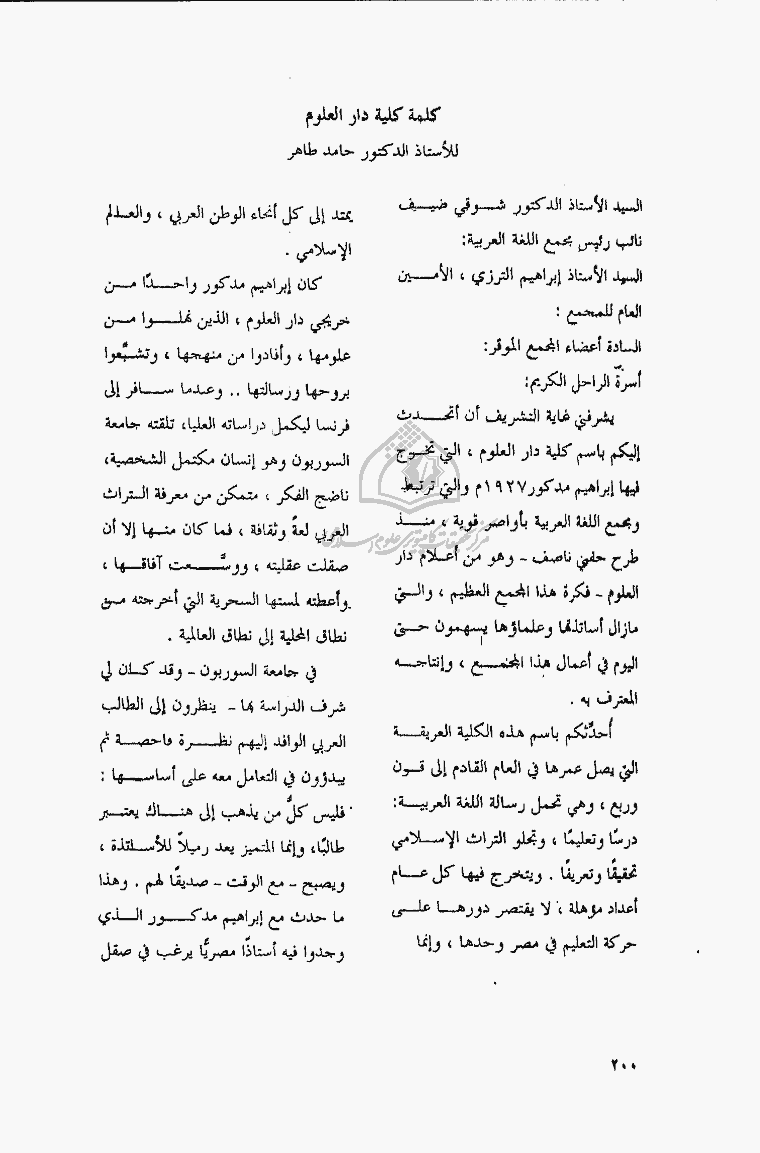 كلمة كلية دار العلوم
للأستاذ الدكتور حامد طاهر
السيد الأستاذ الدكتور شوقي ضيف
نائب رئيس مجمع اللغة العربية:
السيد الأستاذ إبراهيم الترزي ، الأمين
العام للمجمع :
السادة أعضاء المجمع الموقر:
أسرة الراحل الكريم:
يشرفني غاية التشريف أن أتحدث
إليكم باسم كلية دار العلوم ، التي تخرج
فيها إبراهيم مدكور١٩٢٧م والتي ترتبط
ومجمع اللغة العربية بأواصر قوية ، منذ
طرح حفني ناصف - وهو من أعلام دار
العلوم - فكرة هذا المجمع العظيم ، والتي
مازال أساتذتها وعلماؤها يسهمون حتى
اليوم في أعمال هذا المجمع ، وإنتاجه
المعترف به .
أحدِّثكم باسم هذه الكلية العريقة
التي يصل عمرها في العام القادم إلى قرن
وربع ، وهي تحمل رسالة اللغة العربية:
درسًا وتعليمًا ، وتجلو التراث الإسلامي
تحقيقًا وتعريفًا . ويتخرج فيها كل عام
أعداد مؤهلة ، لا يقتصر دورها على
حركة التعليم في مصر وحدها ، وإنما
يمتد إلى كل أنحاء الوطن العربي ، والعالم
الإسلامي .
كان إبراهيم مدكور واحدًا من
خريجي دار العلوم ، الذين نهلوا من
علومها ، وأفادوا من منهجها ، وتشبَّعوا
بروحها ورسالتها .. وعندما سافر إلى
فرنسا ليكمل دراساته العليا، تلقته جامعة
السوربون وهو إنسان مكتمل الشخصية،
ناضج الفكر ، متمكن من معرفة التراث
العربي لغةً وثقافة ، فما كان منها إلا أن
صقلت عقليته ، ووسَّعت آفاقها ،
وأعطته لمستها السحرية التي أخرجته من
نطاق المحلية إلى نطاق العالمية .
في جامعة السوربون - وقد كان لي
شرف الدراسة بها - ينظرون إلى الطالب
العربي الوافد إليهم نظرة فاحصة ثم
يبدؤون في التعامل معه على أساسها :
فليس كلُّ من يذهب إلى هناك يعتبر
طالبًا، وإنما المتميز يعد زميلاً للأساتذة ،
ويصبح - مع الوقت - صديقًا لهم . وهذا
ما حدث مع إبراهيم مدكور الذي
وجدوا فيه أستاذًا مصريًّا يرغب في صقل
٢٠٠